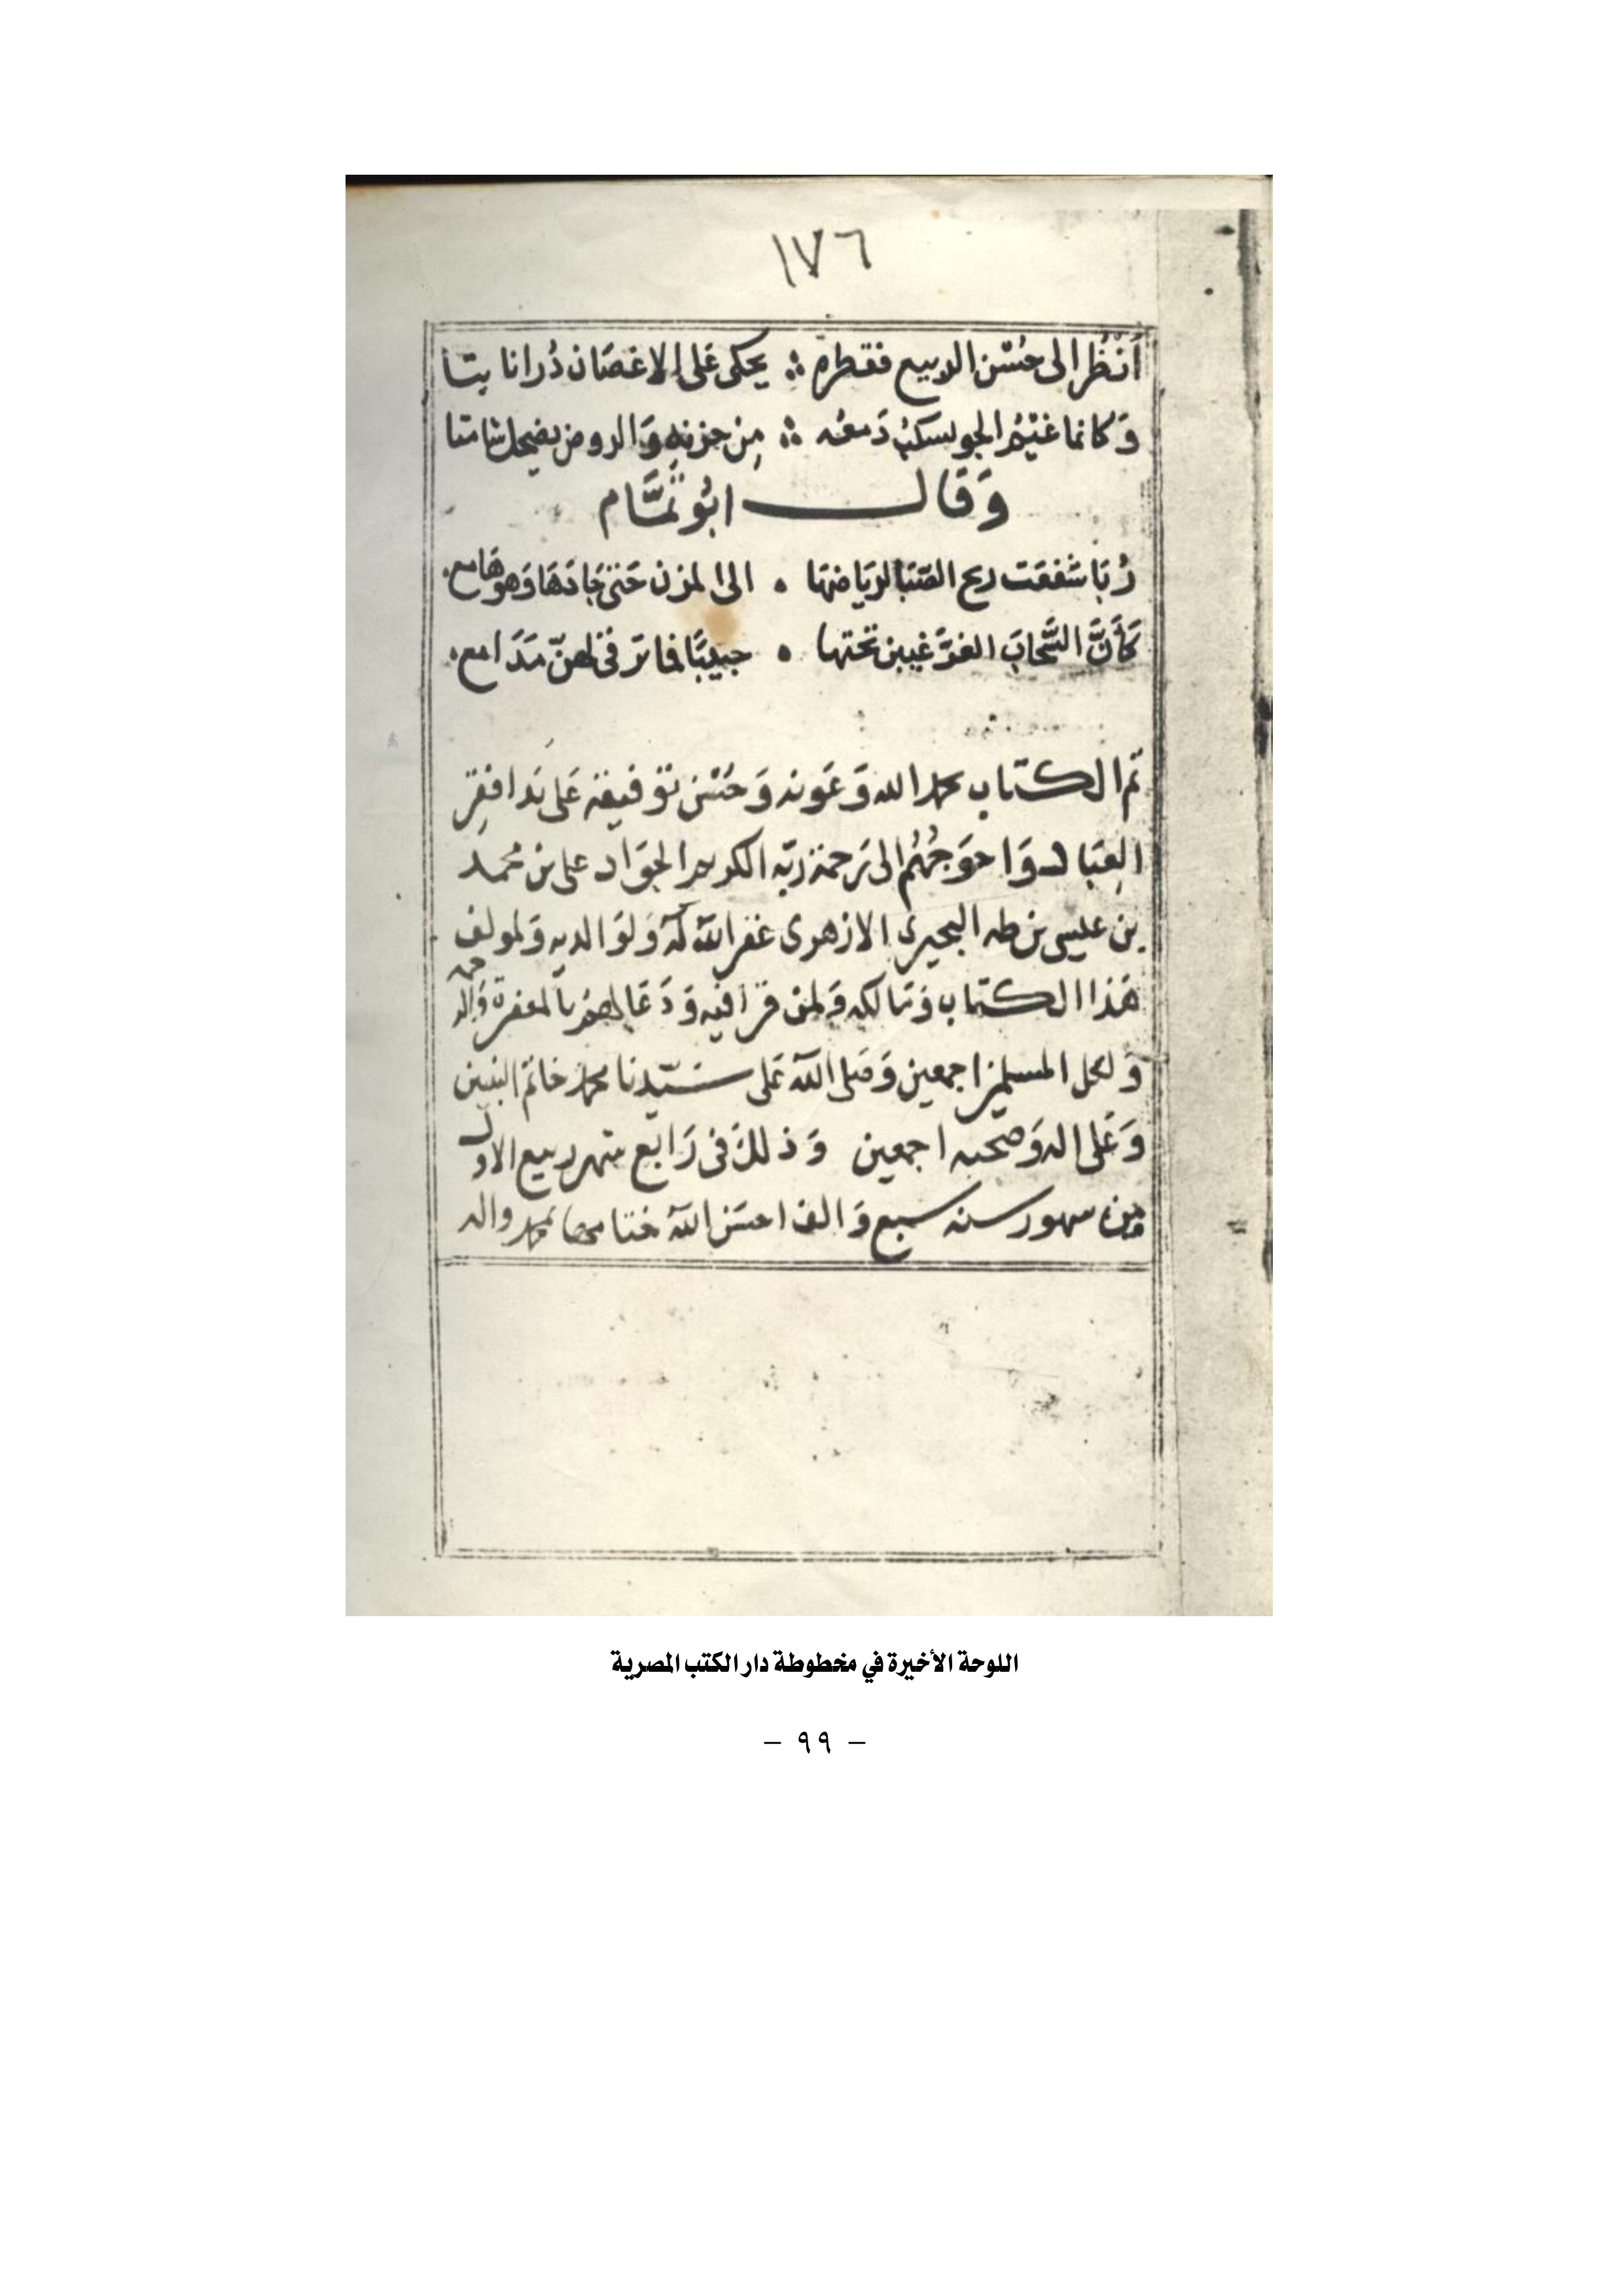 ١٧٦
أنظُر الى حُسْن الربيع فقطره ∴ يحكى عَلى الاغصَان دُرا نابتا
وَكانما غَيْمُ الجو يسكبُ دَمعُه ∴ مِن حزنهِ وَالروض يضحك شامتا
وَقَال ابُو تَمَّام
رُبَا شفعَت ريح الصّبَا لريَاضهَا ۰ الى المزن حَتى جَادَهَا وَهو هَامع
كَأنَّ السَّحابَ الغرَّ غيبن تحتها ۰ حبيبًا فما ترقى لهنّ مَدَامع
تم الكتاب بحمد الله وَعَونه وَحسْن توفيقه عَلى يَد افقرِ
العِبَاد وَاحوَجهُم الى رَحمة ربّه الكريم الجوَاد على بن محمد
بن عيسى بن طه البحيرى الازهرى غفر الله لَهُ وَلوَالديه وَلمولف
هَذا الكتاب وَمَالكه وَلمن قرَا فيه وَدَعَا لهم بالمغفرة وَالرحمه
وَلكل المسلمين اجمعين وَصَلى الله عَلى سَيّدنا محمد خاتم النبيين
وَعَلى اله وَصَحبه اجمعين وَذلك فى رَابع شهر ربيع الاول
مِن شهور سنه سبع وَالف احسَن الله ختامها بمحمد واله
اللوحة الأخيرة في مخطوطة دار الكتب المصرية
– ٩٩ –